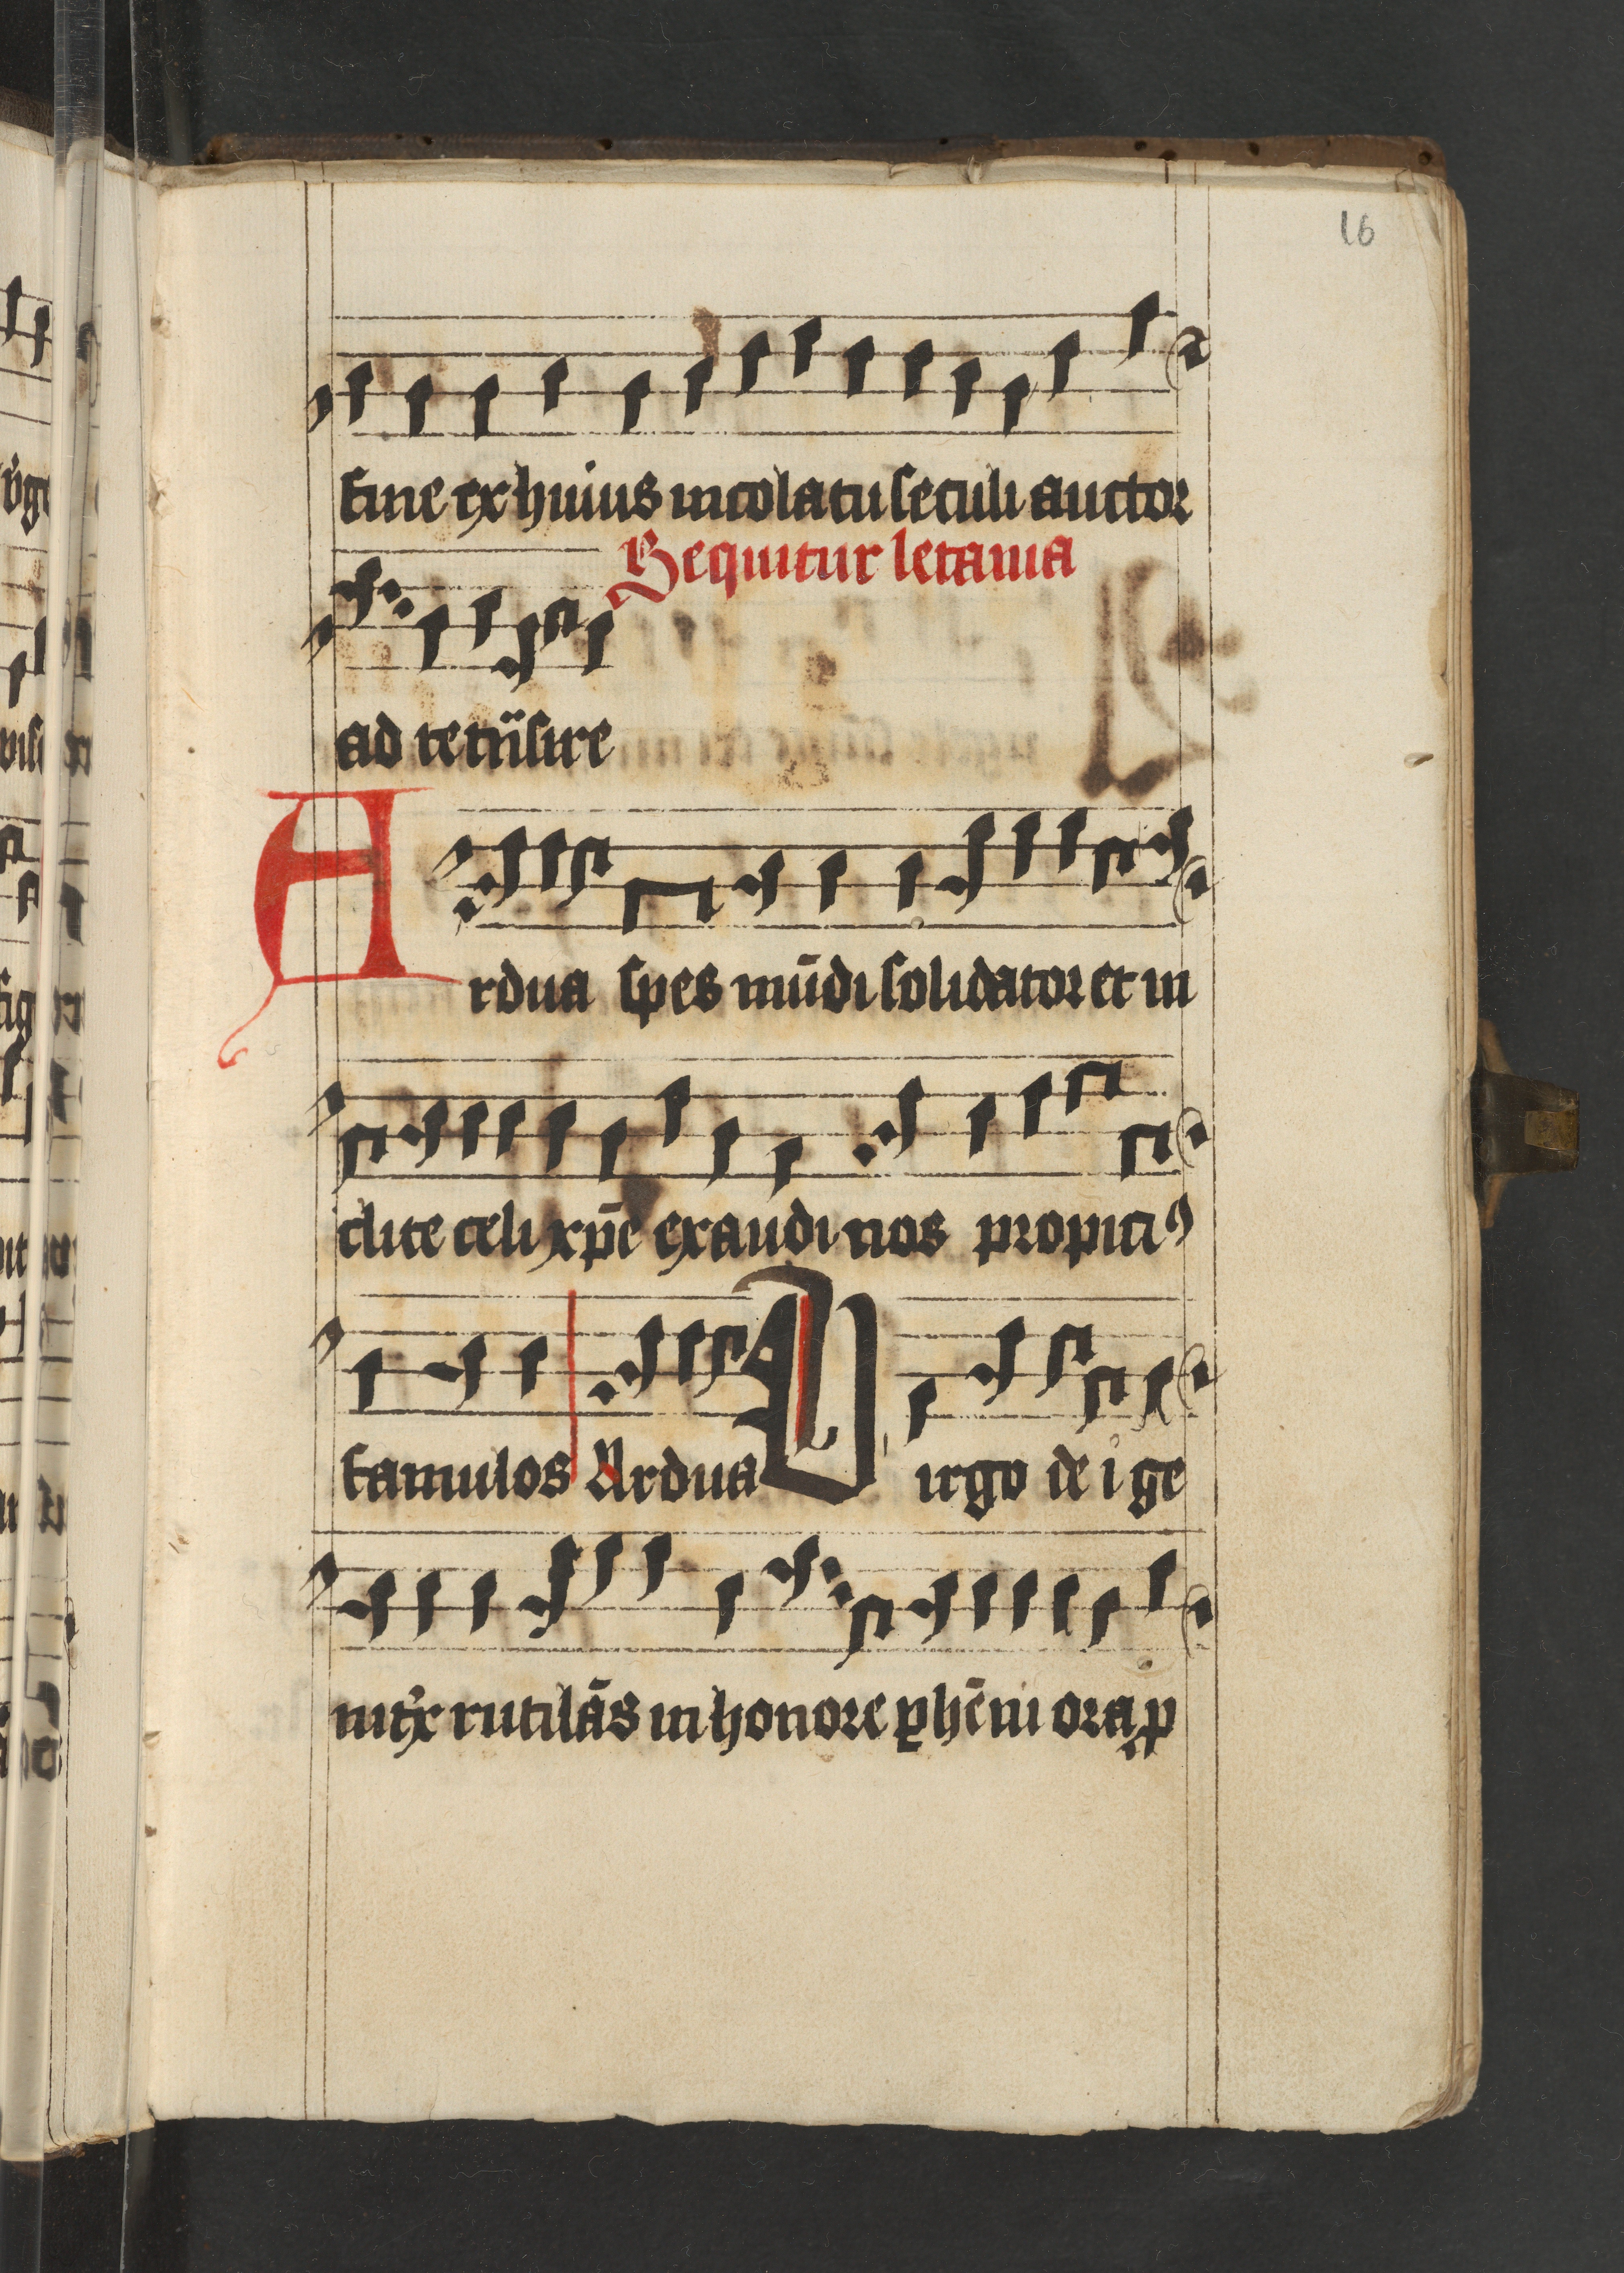 16
fine ex huius incolatu seculi auctor
Sequitur letania
ad te trāsire
Ardua spes mūdi solidator et in
clite celi xp̄e exaudi nos propiciꝰ
famulos Ardua Virgo dei ge
nitͥx rutilās in honore ꝑhēni ora ꝓ